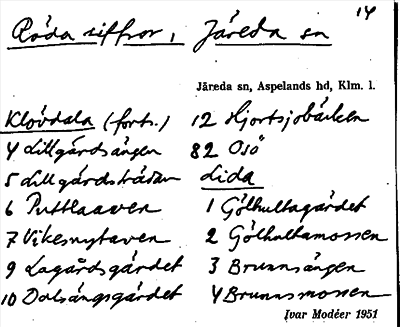 14
Röda siffror, Järeda sn
Järeda sn, Aspelands hd, Klm. l.
Klövdala (forts.)
4 Lillgärdsängen
5 Lillgärdsträdan
6 Puttlaaven
7 Vikesnytaven
9 Lagårdsgärdet
10 Dalsängsgärdet
12 Hjortsjöbäcken
82 Ösö
Lida
1 Gölhultagärdet
2 Gölhultamossen
3 Brunnsängen
4 Brunnsmossen
Ivar Modéer 1951